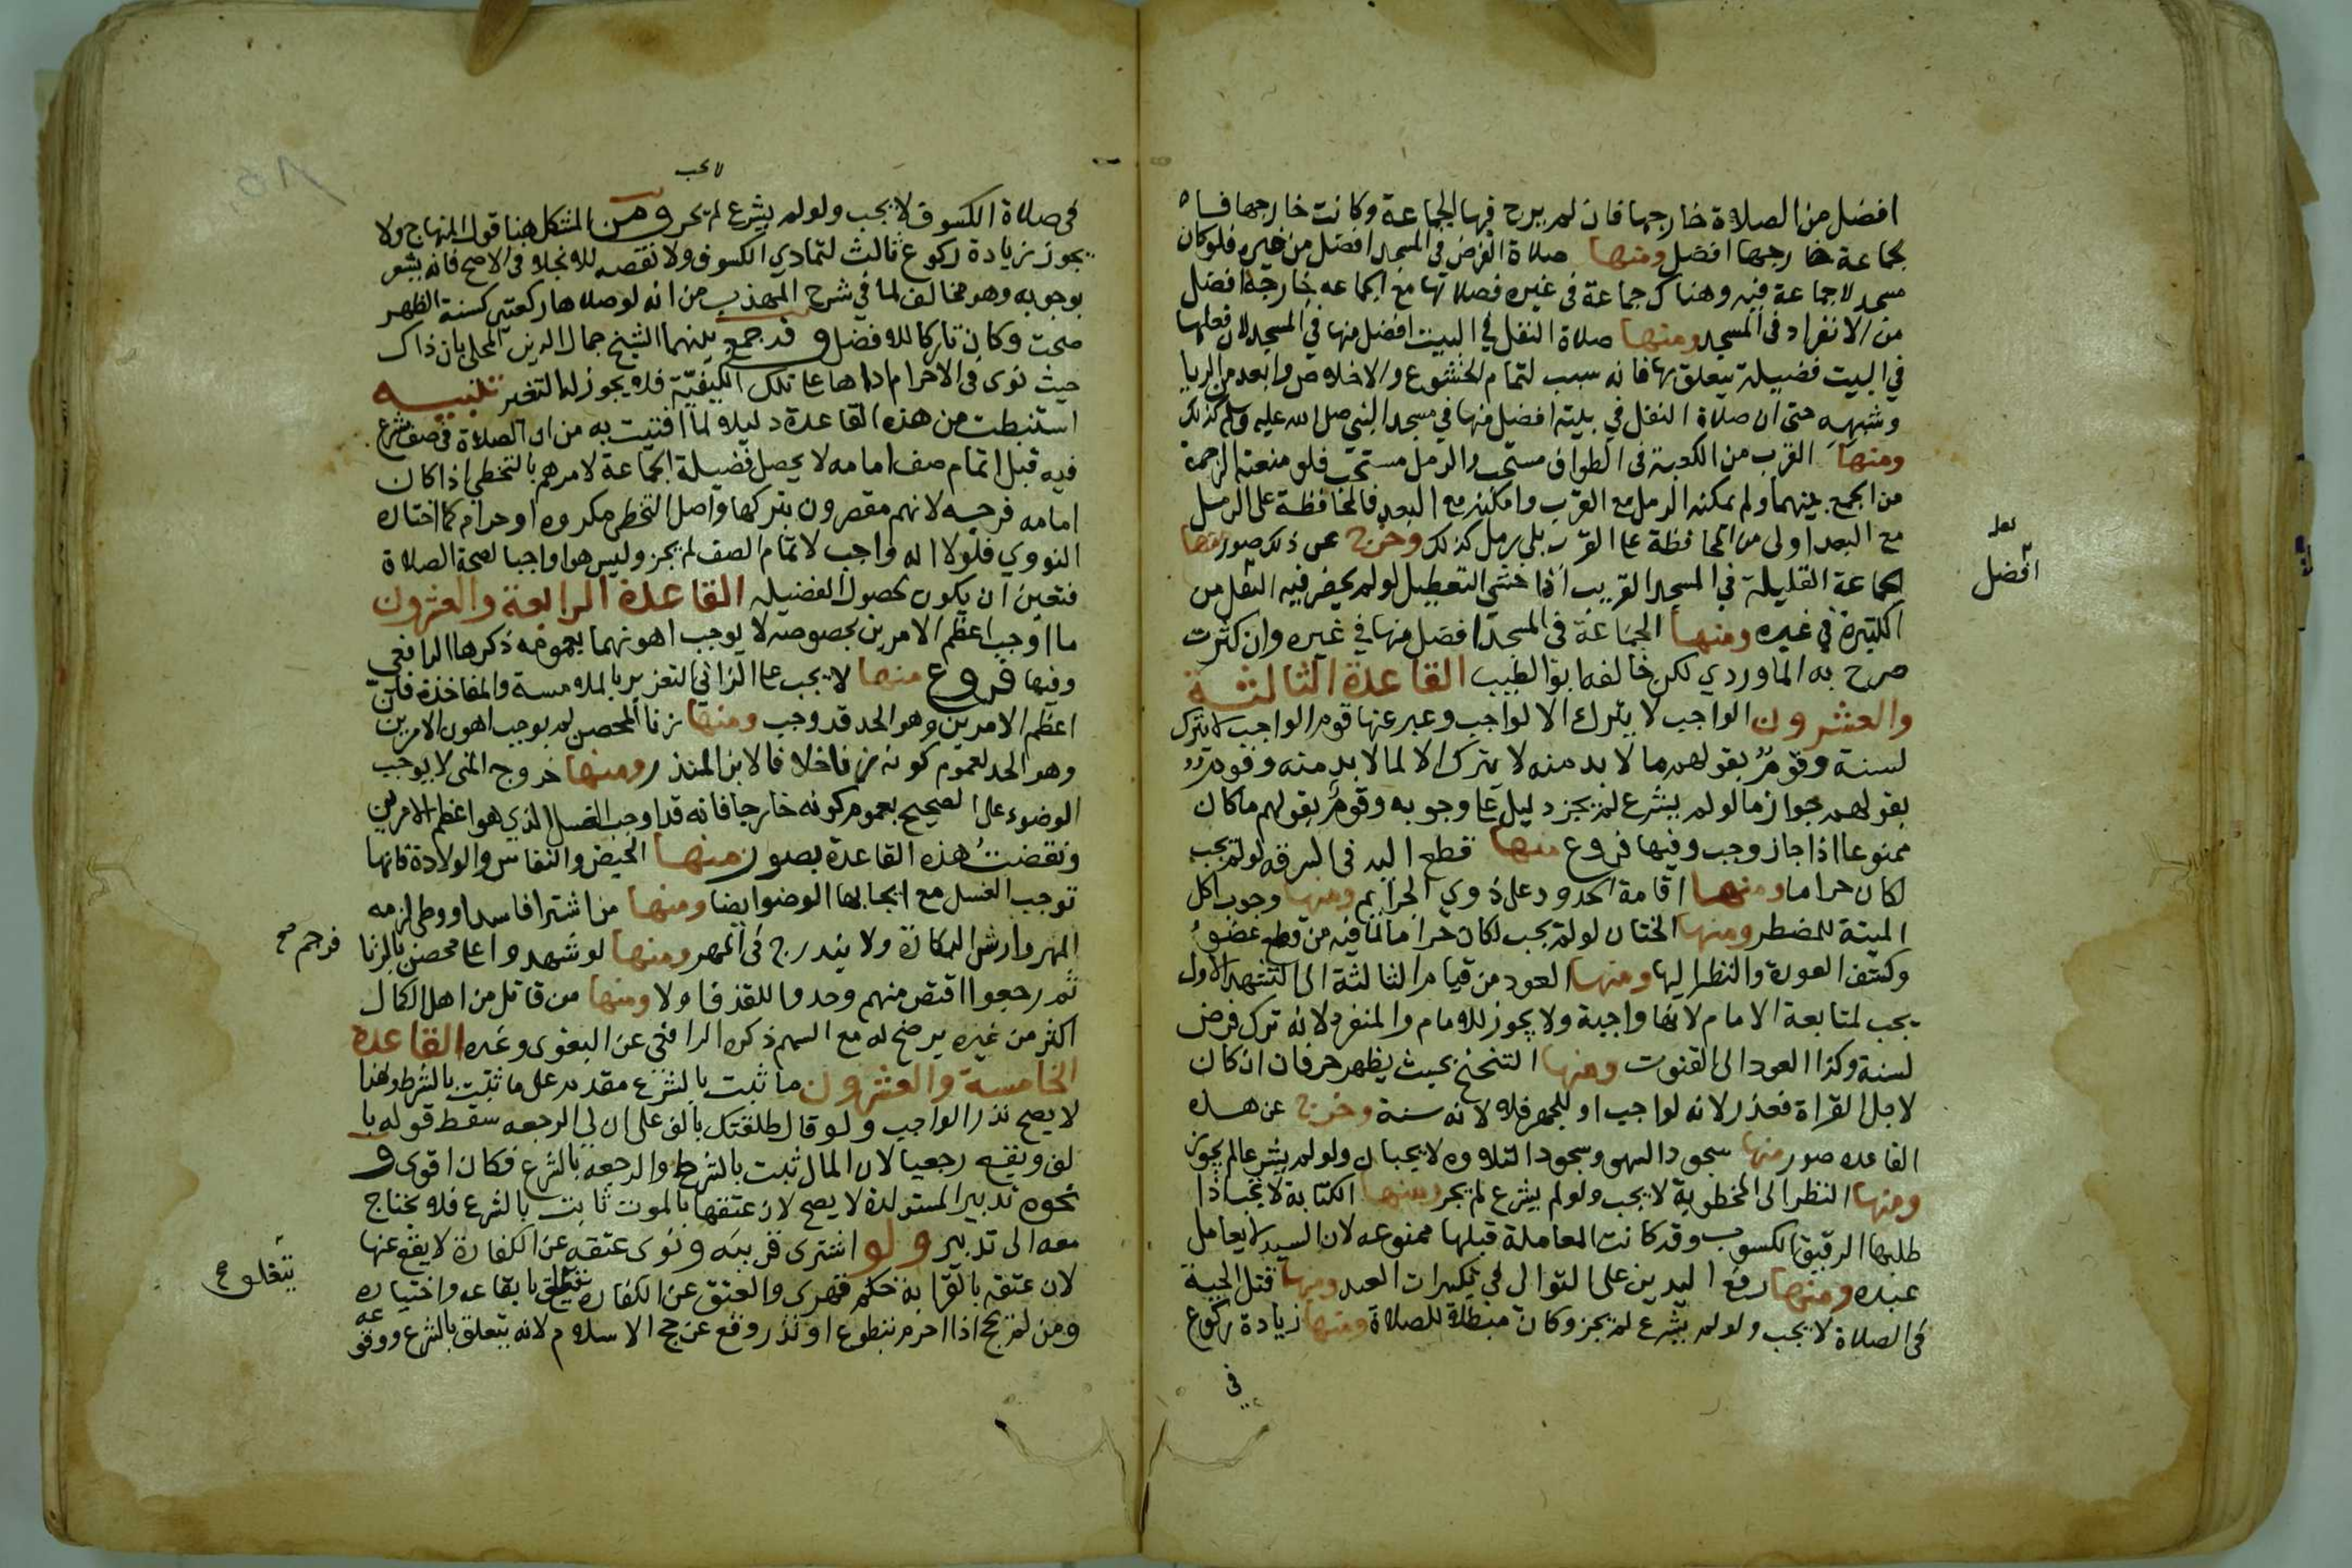 افضل من الصلاة خارجها فان لم يرج فيها الجماعة وكانت خارجها فصلاة
بجماعة خارجها افضل ومنها صلاة الفرض في المسجد افضل من غيره فلو كان
مسجد لا جماعة فيه وهناك جماعة في غيره فصلاتها مع الجماعه خارجه افضل
من الانفراد في المسجد ومنها صلاة النفل في البيت افضل منها في المسجد لان فعلها
في البيت فضيلة تتعلق بها فانه سبب لتمام الخشوع والاخلاص وابعد من الريا
وشبهه حتى ان صلاة النفل في بيته افضل منها في مسجد النبي صلى الله عليه وسلم كذلك
ومنها القرب من الكعبة في الطواف مستحب والرمل مستحب فلو منعته الزحمة
من الجمع بينهما ولم يمكنه الرمل مع القرب وامكنه مع البعد فالمحافظة على الرمل
مع البعد اولى من المحافظة على القرب بلى رمل كذلك وخرج عن ذلك صور منها
الجماعة القليلة في المسجد القريب اذا خشي التعطيل لو لم يحضر فيه افضل من
الكثيرة في غيره ومنها الجماعة في المسجد افضل منها في غيره وان كثرت
صرح به الماوردي لكن خالفه ابو الطيب القاعدة الثالثة
والعشرون الواجب لا يترك الا لواجب وعبر عنها قوم الواجب لا يترك
لسنة وقوم بقولهم ما لا بد منه لا يترك الا لما لا بد منه وقوم
بقولهم جواز ما لو لم يشرع لم يجز دليل على وجوبه وقوم بقولهم ما كان
ممنوعا اذا جاز وجب وفيها فروع منها قطع اليد في السرقه لو لم يجب
لكان حراما ومنها اقامة الحدود على ذوي الجرائم ومنها وجوب اكل
الميتة للمضطر ومنها الختان لو لم يجب لكان حراما لما فيه من قطع عضو
وكشف العورة والنظر اليها ومنها العود من قيام الثالثة الى التشهد الاول
يجب لمتابعة الامام لانها واجبة ولا يجوز للامام والمنفرد لانه ترك فرض
لسنة وكذا العود الى القنوت ومنها التنحنح بحيث يظهر حرفان ان كان
لاجل القراة فعذر لانه لواجب او للجهر فلا لانه سنة وخرج عن هذه
القاعده صور منها سجود السهو وسجود التلاوه لا يجبان ولو لم يشرعا لم يجوز
ومنها النظر الى المخطوبة لا يجب ولو لم يشرع لم يجز ومنها الكتابة لا تجب اذا
طلبها الرقيق الكسوب وقد كانت المعاملة قبلها ممنوعه لان السيد لا يعامل
عبده ومنها رفع اليدين على التوالي في تكبيرات العيد ومنها قتل الحية
في الصلاة لا يجب ولو لم يشرع لم يجز وكان مبطلا للصلاة ومنها زيادة ركوع
في
لعله
افضل
لا يجب
في صلاة الكسوف لا يجب ولو لم يشرع لم يجز ومن المشكل هنا قول المنهاج ولا
يجوز زيادة ركوع ثالث لتمادي الكسوف ولا نقصه للانجلاء في الاصح فانه يشعر
بوجوبه وهو مخالف لما في شرح المهذب من انه لو صلاها ركعتين كسنة الظهر
صحت وكان تاركا للافضل وقد جمع بينهما الشيخ جمال الدين المحلي بان ذاك
حيث نوى في الاحرام اداها على تلك الكيفية فلا يجوز له التغير تنبيه
استنبطت من هذه القاعدة دليلا لما افتيت به من ان الصلاة في صف شرع
فيه قبل اتمام صف امامه لا يحصل فضيلة الجماعة لامرهم بالتخطي اذا كان
امامه فرجه لانهم مقصرون بتركها واصل التخطي مكروه او حرام كما اختاره
النووي فلولا انه واجب لاتمام الصف لم يجز وليس هو واجبا لصحة الصلاة
فتعين ان يكون لحصول الفضيله القاعدة الرابعة والعشرون
ما اوجب اعظم الامرين بخصوصه لا يوجب اهونهما بعمومه ذكرها الرافعي
وفيها فروع منها لا يجب على الزاني التعزير بالملامسة والمفاخذة فان
اعظم الامرين وهو الحد قد وجب ومنها زنا المحصن لم يوجب اهون الامرين
وهو الجلد لعموم كونه زنا خلافا لابن المنذر ومنها خروج المني لا يوجب
الوضوء على الصحيح بعموم كونه خارجا فانه قد اوجب الغسل الذي هو اعظم الامرين
ونقضت هذه القاعدة بصور منها الحيض والنفاس والولادة فانها
توجب الغسل مع ايجابها الوضوا ايضا ومنها من اشترا فاسدا ووطى لزمه
المهر وارش البكارة ولا يندرج في المهر ومنها لو شهدوا على محصن بالزنا
ثم رجعوا اقتص منهم وحدوا للقذف اولا ومنها من قاتل من اهل الكمال
اكثر من غيره يرضخ له مع السهم ذكره الرافعي عن البغوي وغيره القاعدة
الخامسة والعشرون ما ثبت بالشرع مقدم على ما ثبت بالشرط ولهذا
لا يصح نذر الواجب ولو قال طلقتك بالف على ان لي الرجعه سقط قوله با
لف ويقع رجعيا لان المال ثبت بالشرط والرجعة بالشرع فكان اقوى و
نحوه تدبير المستولدة لا يصح لان عتقها بالموت ثابت بالشرع فلا يحتاج
معه الى تدبير ولو اشترى قريبه ونوى عتقه عن الكفارة لا يقع عنها
لان عتقه بالقرابة حكم قهري والعتق عن الكفاره يتعلق بايقاعه واختياره
ومن لم يحج اذا احرم بتطوع او نذر وقع عن حجة الاسلام لانه يتعلق بالشرع ووقوعه
فرجم صح
يتعلق صح